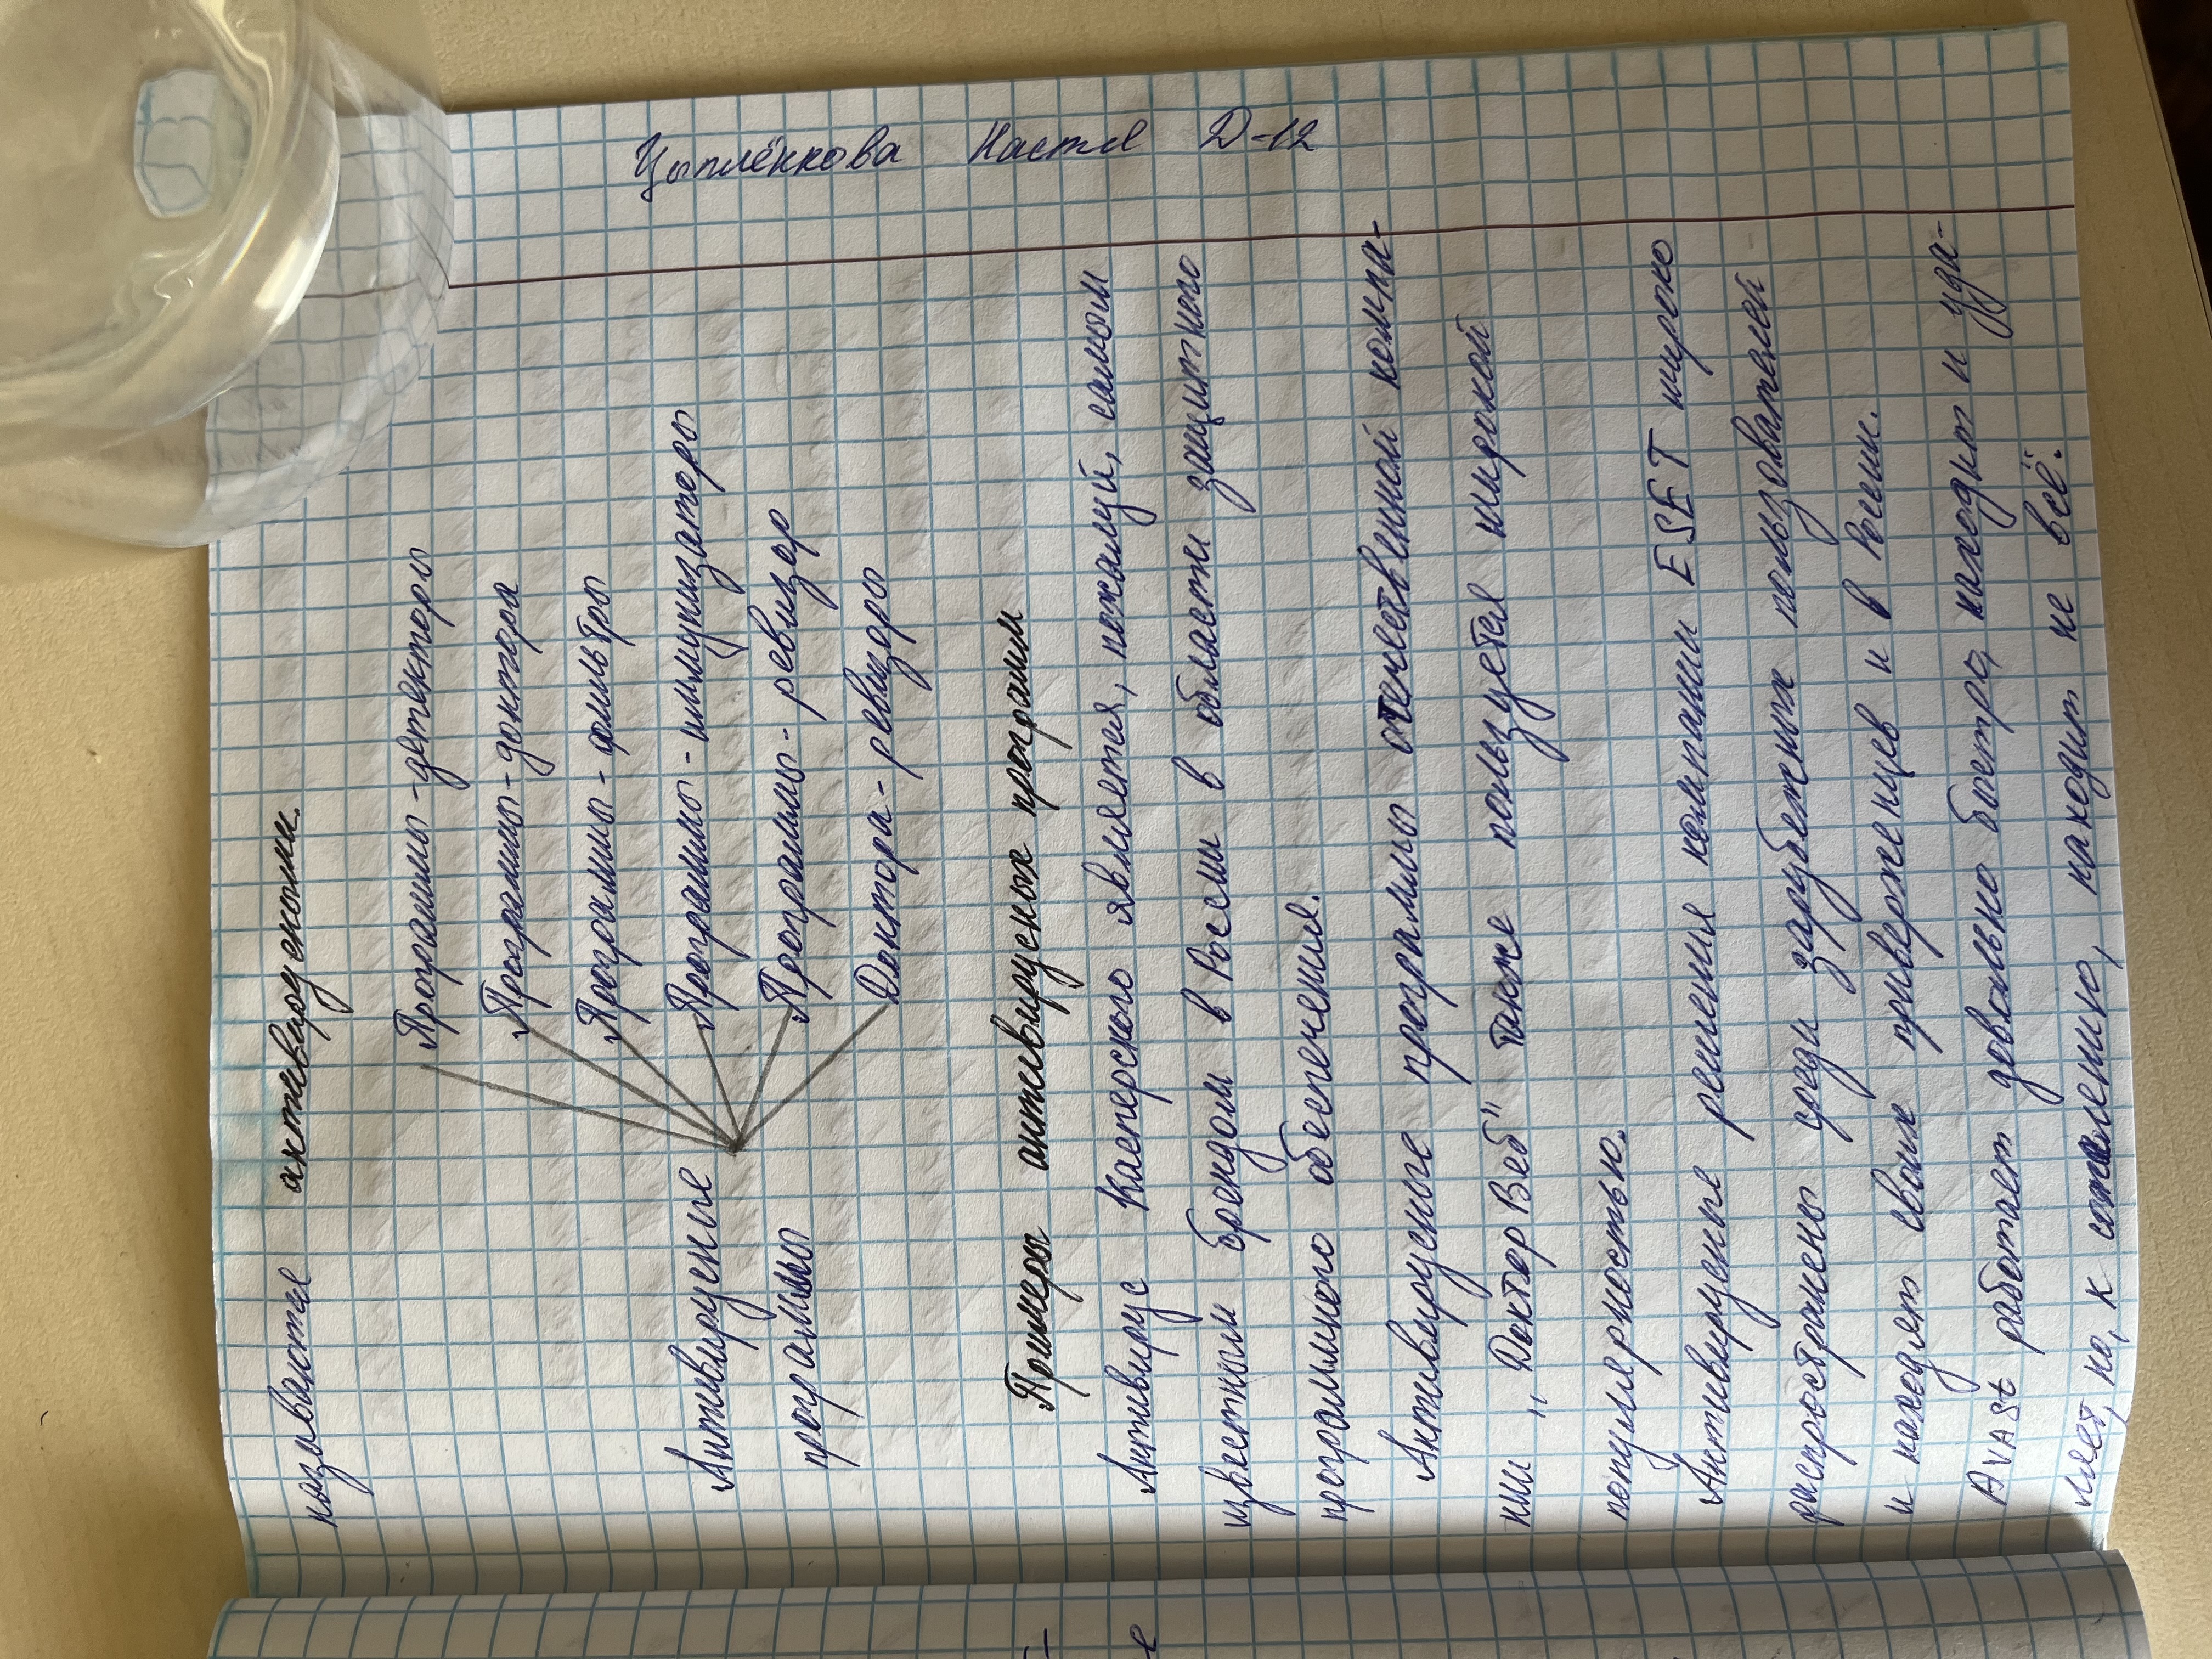 Цыплёнкова Настя Д-12
называются антивирусными.
Программы-детекторы
Программы-доктора
Программы-фильтры
Антивирусные
Программы-иммунизаторы
программы
Программы-ревизор
Доктора-ревизоры
Примеры антивирусных программ
Антивирус Касперского является, пожалуй, самым
известным брендом в России в области защитного
программного обеспечения.
Антивирусные программы отечественной компа-
нии „Доктор Веб" также пользуется широкой
популярностью.
Антивирусные решения компании ESET широко
распространены среди зарубежных пользователей
и находят своих приверженцев и в России.
AVASt работает довольно быстро, находит и уда-
ляет, но, к сожалению, находит не всё.